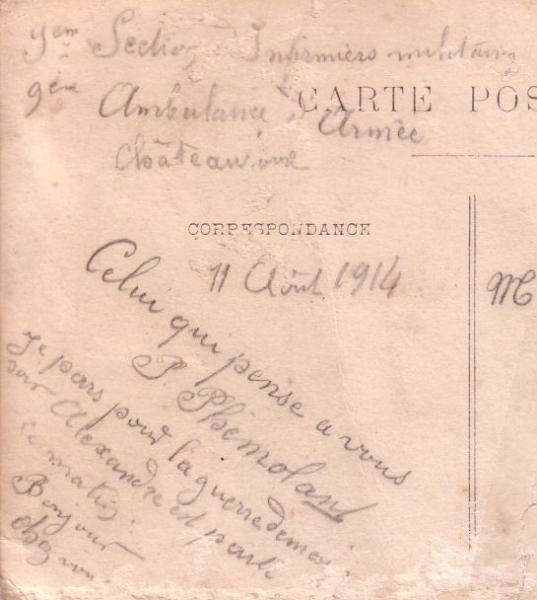 9em Section Infirmiers militair
9em Ambulance Armée
CARTE POS
Châteauroux
CORRESPONDANCE
11 Août 1914
M
Celui qui pense a vous
P. Phémolant
Je pars pour la guerre demai
soir Alexandre est parti
ce matin.
Bonjour
chez vou